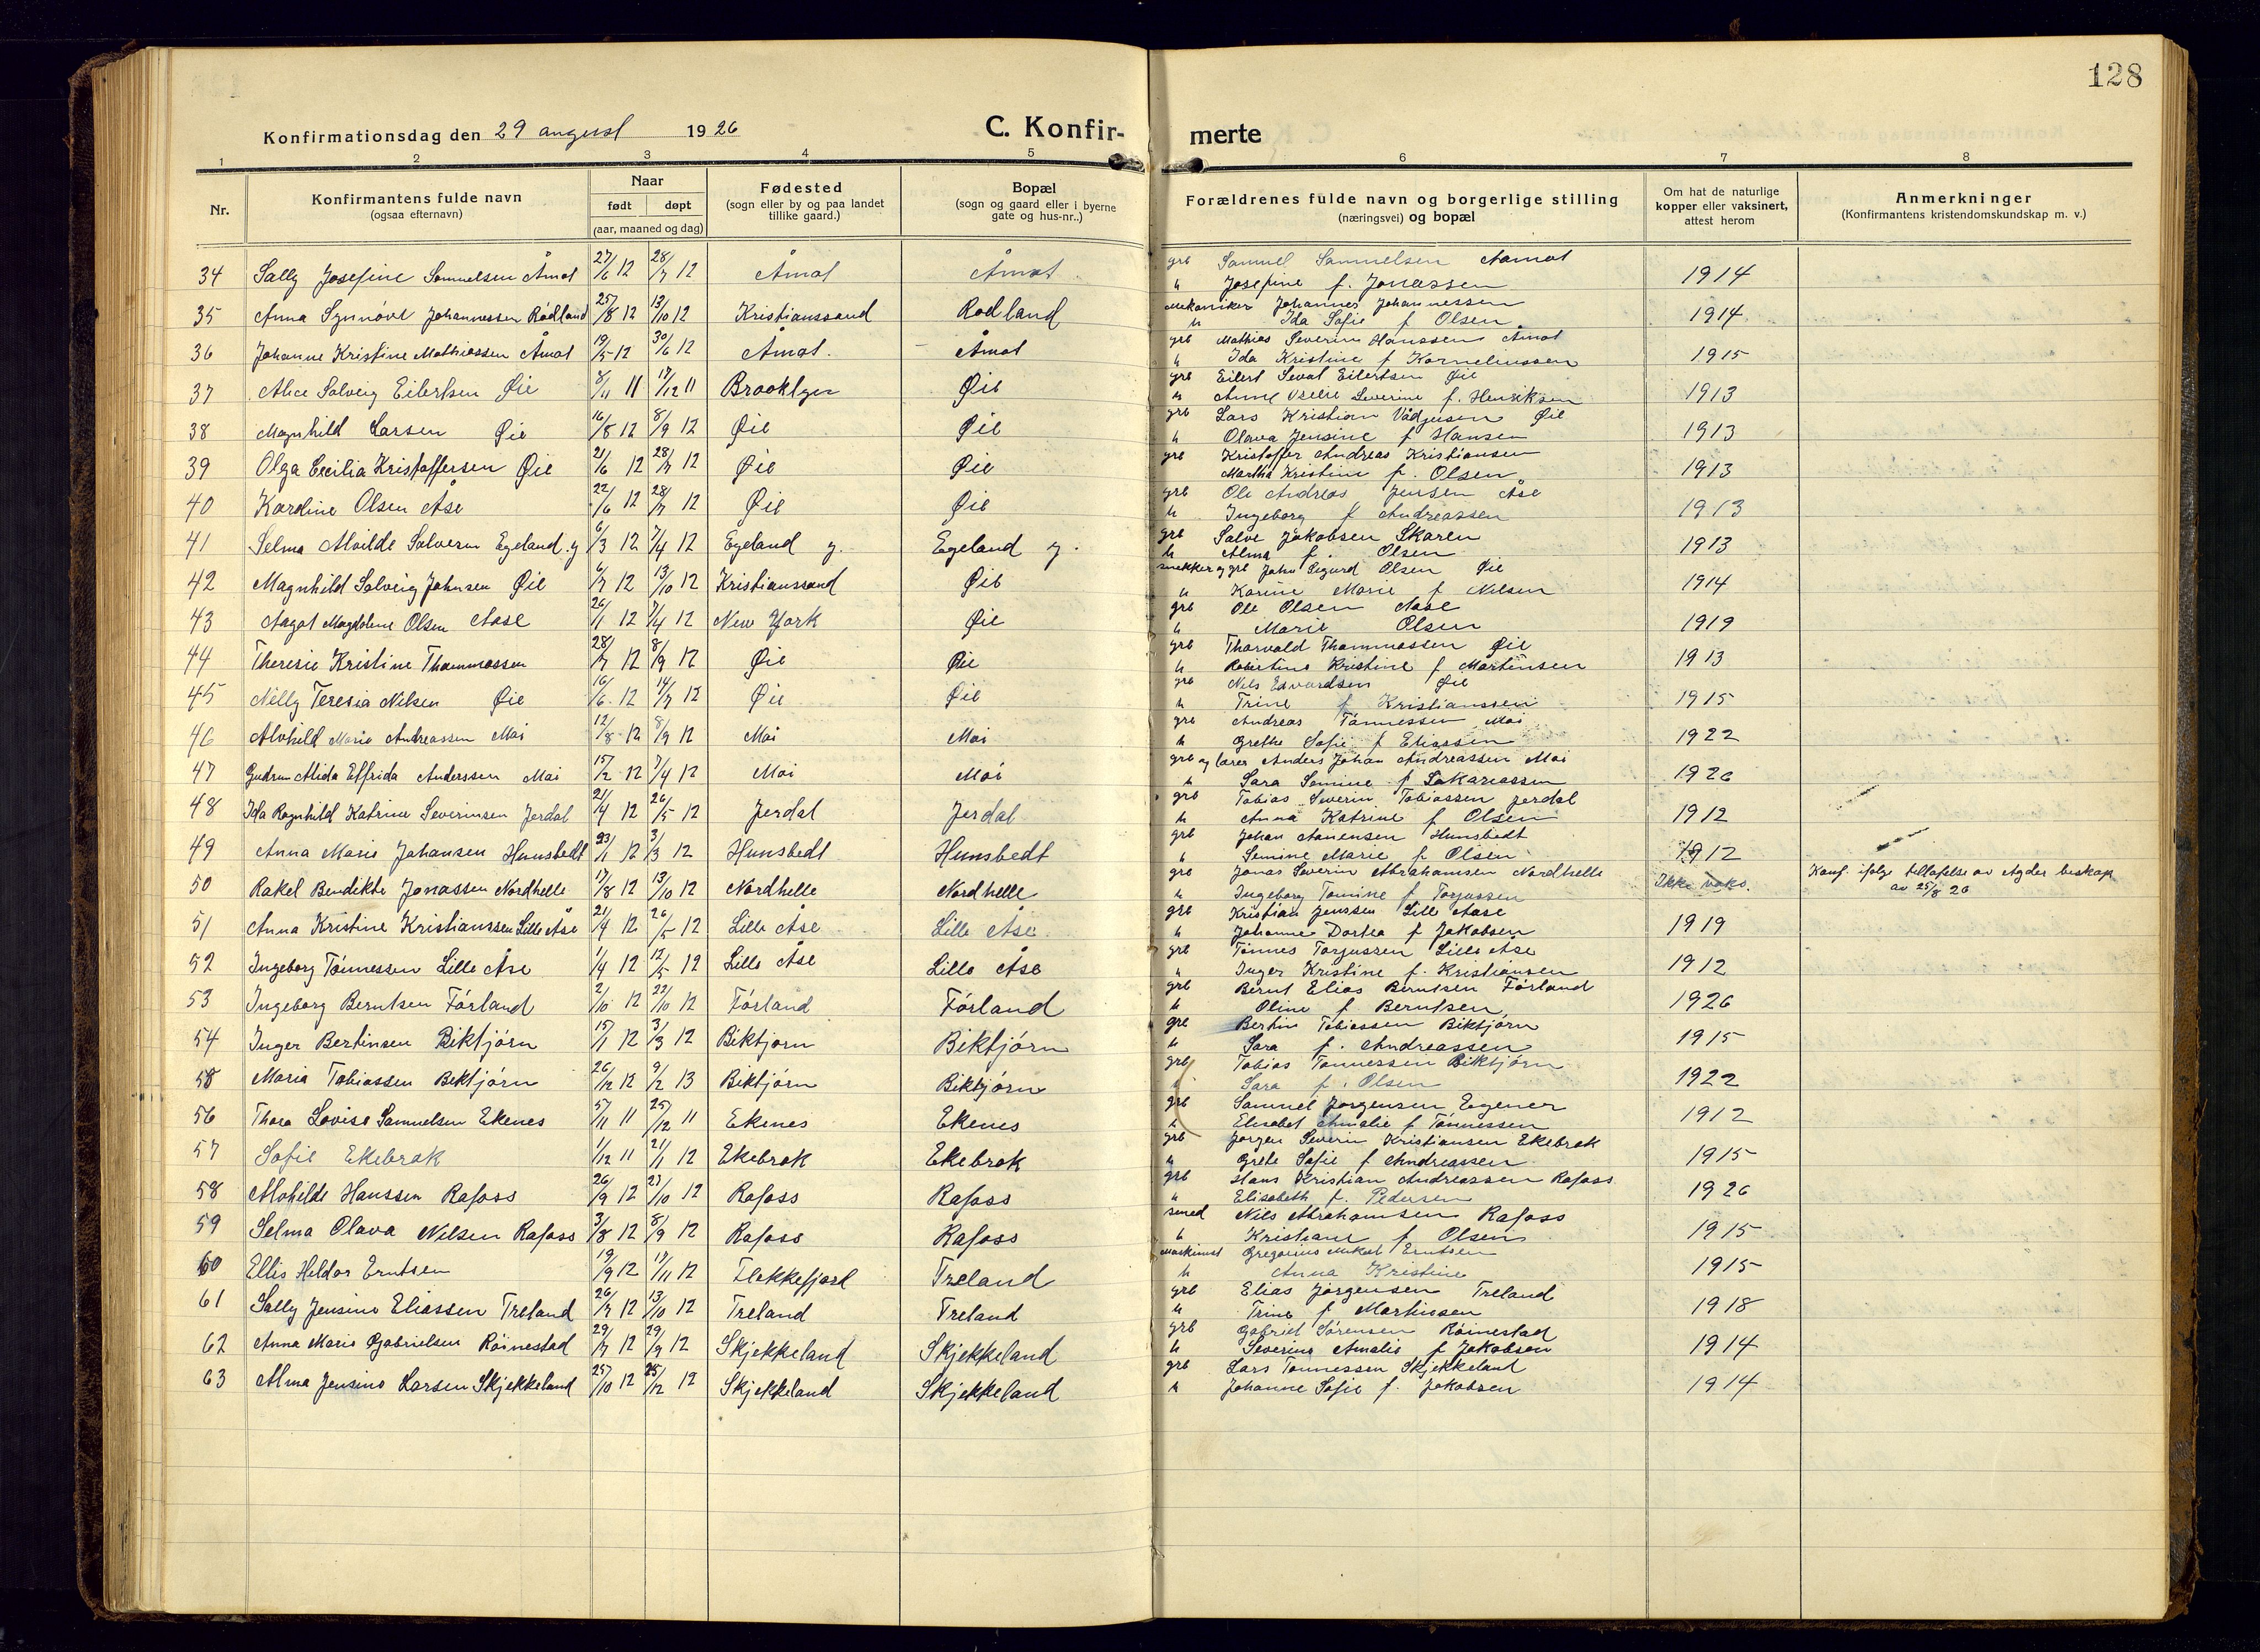 128
Konfirmationsdag den 29 august 1926
C. Konfir-
merte
1 2 3 4 5 6 7 8
Nr.
Konfirmantens fulde navn
(ogsaa efternavn)
Naar
født døpt
(aar, maaned og dag)
Fødested
(sogn eller by og paa landet
tillike gaard.)
Bopæl
(sogn og gaard eller i byerne
gate og hus-nr..)
Forældrenes fulde navn og borgerlige stilling
(næringsvei) og bopæl
Om hat de naturlige
kopper eller vaksinert,
attest herom
Anmerkninger
(Konfirmantens kristendomskundskap m. v.)
34 Sally Josefine Samuelsen Åmot 27/6 12 28/7 12 Åmot Åmot grb Samuel Samuelsen Aamot 1914
h Josefine f. Jonassen
35 Anna Synnøve Johannessen Rødland 25/8 12 13/10 12 Kristianssand Rødland Mekaniker Johannes Johannessen 1914
h Ida Sofie f Olsen
36 Johanne Kristine Mathiassen Åmot 19/5 12 30/6 12 Åmot. Åmot grb Mathias Severin Hanssen Åmot 1915
h Ida Kristine f Korneliussen
37 Alice Solveig Eilertsen Øie 8/11 11 17/12 11 Brooklyn Øie grb Eilert Sevat Eilertsen Øie 1913
h Anne Severine f. Henriksen
38 Magnhild Larsen Øie 16/8 12 8/9 12 Øie Øie grb Lars Kristian Øie 1913
h Olava Jensine f Hansen
39 Olga Cecilia Kristoffersen Øie 21/6 12 28/7 12 Øie Øie grb Kristoffer Andreas Kristiansen 1913
Martha Kristine f. Olsen
40 Karoline Olsen Åse 22/6 12 28/7 12 Øie Øie grb Ole Andreas Jensen Åse 1913
h Ingeborg f Andreassen
41 Selma Alvilde Salvesen Egeland y 6/3 12 7/4 12 Egeland y. Egeland y. grb Salve Jakobsen Skaren 1913
h Alma f. Olsen
42 Magnhild Solveig Johnsen Øie 6/7 12 13/10 12 Kristianssand Øie snekker og grb John Sigurd Olsen Øie 1914
h Karine Marie f Nilsen
43 Aagot Magdalene Olsen Aase 26/1 12 7/4 12 New York Øie grb Ole Olsen Aase 1919
h Marie Olsen
44 Theresie Kristine Thommassen 28/7 12 8/9 12 Øie Øie grb Thorvald Thommassen Øie 1913
h Robertine Kristine f Martinsen
45 Nelly Teresia Nilsen Øie 16/6 12 14/7 12 Øie Øie grb Nils Edvardsen Øie 1915
h Trine f Kristianssen
46 Alvhild Marie Andreassen Moi 12/8 12 8/9 12 Moi Moi grb Andreas Tønnessen Moi 1922
h Grethe Sofie f Eliassen
47 Gudrun Alida Elfrida Anderssen Moi 15/2 12 7/4 12 Moi Moi grb og lærer Anders Johan Andreassen Moi 1926
h Sara Semine f Sakariassen
48 Ida Ragnhild Katrine Severinsen Jerdal 21/4 12 26/5 12 Jerdal Jerdal grb Tobias Severin Tobiassen Jerdal 1912
h Anna Katrine f Olsen
49 Anna Marie Johansen Hunsbedt 23/1 12 3/3 12 Hunsbedt Hunsbedt grb Johan Aanensen Hunsbedt 1912
h Semine Marie f. Olsen
50 Rakel Bendikte Jonassen Nordhelle 17/8 12 13/10 12 Nordhelle Nordhelle grb Jonas Severin Abrahamsen Nordhelle Ikke vaks. Konf. ifølge tillatelse av Agder biskop
h Ingeborg Tomine f Torjussen av 25/8 26
51 Anna Kristine Kristianssen Lille Åse 21/4 12 26/5 12 Lille Åse Lille Åse grb Kristian Jenssen Lille Aase 1919
h Johanne Dortea f Jakobsen
52 Ingeborg Tønnessen Lille Åse 1/4 12 12/5 12 Lille Åse Lille Åse grb Tønnes Torgussen Lille Åse 1912
h Inger Kristine f. Kristiansen
53 Ingeborg Berntsen Førland 2/10 12 22/10 12 Førland Førland grb Bernt Elias Berntsen Førland 1926
h Oline f. Berntsen
54 Inger Bertinsen Biktjørn 15/1 12 3/3 12 Biktjørn Biktjørn grb Bertin Tobiassen Biktjørn 1915
h Sara f. Andreassen
55 Maria Tobiassen Biktjørn 26/12 12 9/2 13 Biktjørn Biktjørn grb Tobias Tønnessen Biktjørn 1922
h Sara f. Olsen
56 Thora Lovise Samuelsen Ekenes 5/11 11 25/12 11 Ekenes Ekenes grb Samuel Jørgensen 1912
h Elisabet Amalie f Tønnessen
57 Sofie Ekebrok 1/12 11 21/1 12 Ekebrok Ekebrok grb Jørgen Severin Kristiansen Ekebrok 1915
h Grete Sofie f Andreassen
58 Alvhilde Hanssen Rafoss 26/9 12 27/10 12 Rafoss Rafoss grb Hans Kristian Andreassen Rafoss 1926
h Elisabeth f. Pedersen
59 Selma Olava Nilsen Rafoss 3/8 12 8/9 12 Rafoss Rafoss smed Nils Abrahamsen Rafoss 1915
h Kristiane f Olsen
60 Ellis Heldor Erntsen 19/9 12 17/11 12 Flekkefjord Treland Maskinist Gregorius Mikal Erntsen 1915
h Anna Kristine
61 Sally Jensine Eliassen Treland 26/7 12 13/10 12 Treland Treland grb Elias Jørgensen Treland 1918
h Trine f Martinsen
62 Anna Marie Gabrielsen Röinestad 29/7 12 29/9 12 Skjekkeland Skjekkeland grb Gabriel Sørensen Röinestad 1914
h Severine Amalie f Jakobsen
63 Alma Jensine Larsen Skjekkeland 25/10 12 25/12 12 Skjekkeland Skjekkeland grb Lars Tønnessen Skjekkeland 1914
h Johanne Sofie f. Jakobsen